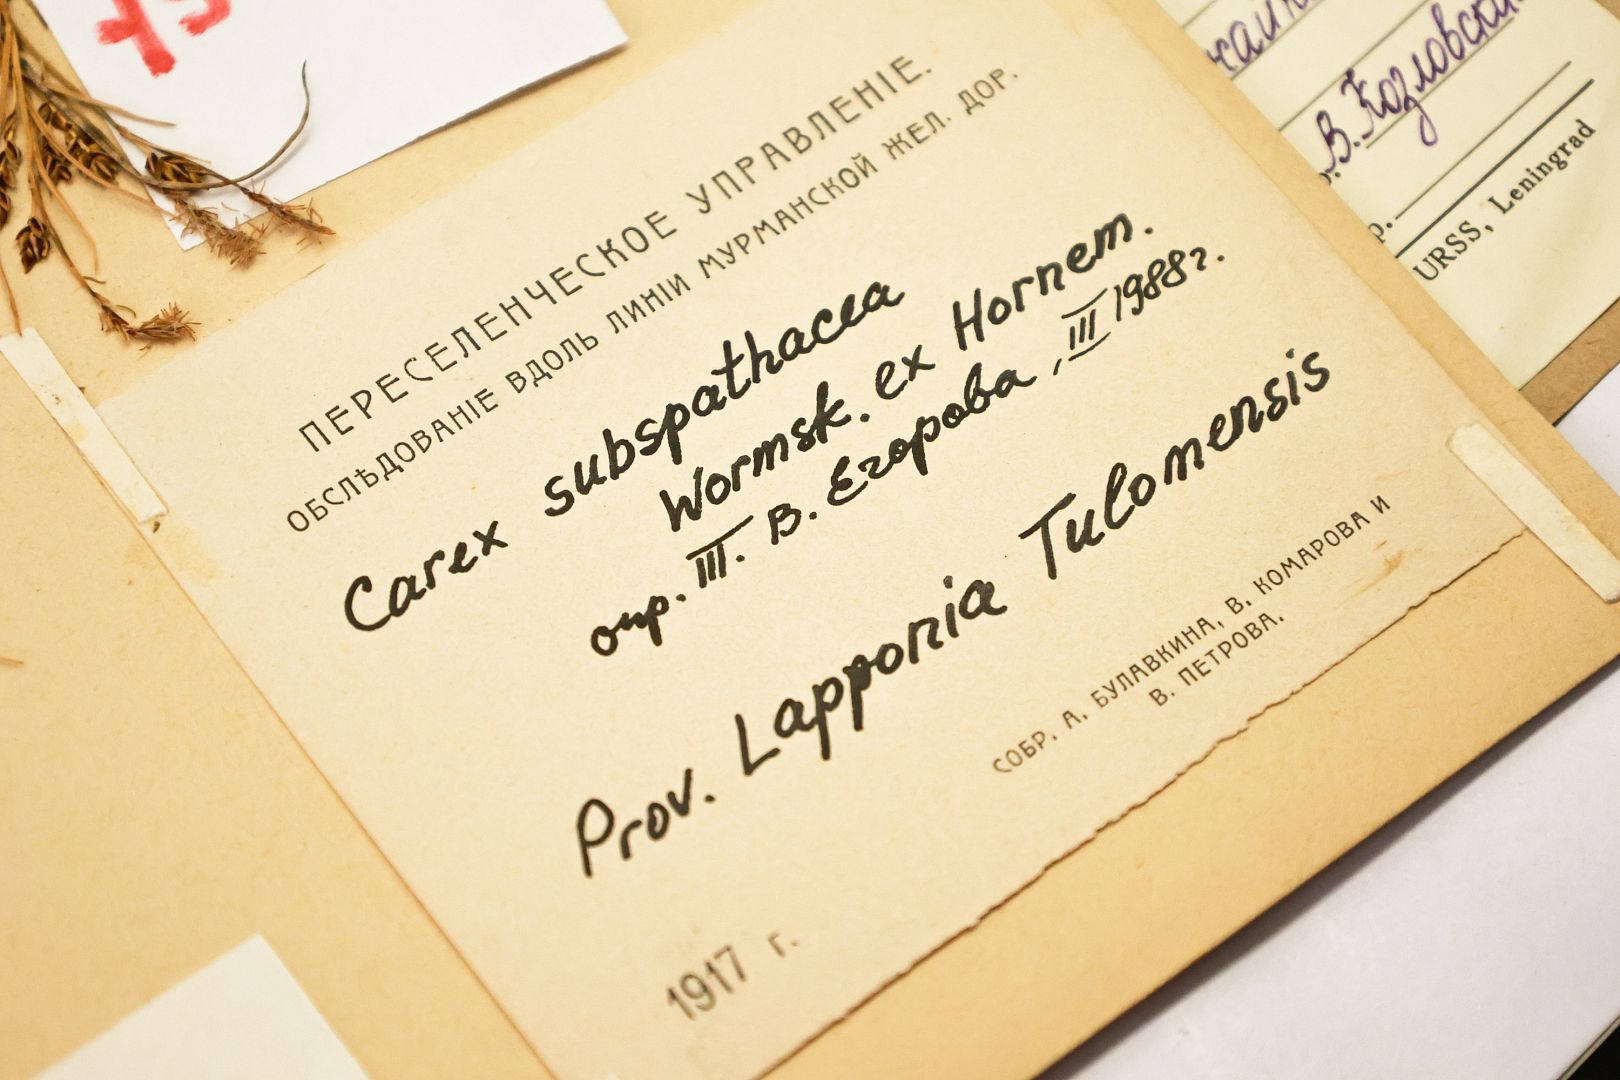 ПЕРЕСЕЛЕНЧЕСКОЕ УПРАВЛЕНІЕ.
ОБСЛѢДОВАНІЕ ВДОЛЬ ЛИНІИ МУРМАНСКОЙ ЖЕЛ. ДОР.
Carex subspathacea
Wormsk. ex Hornem.
опр. III. В. Егорова, III 1988 г.
Prov. Lapponia Tulomensis
СОБР. А. БУЛАВКИНА, В. КОМАРОВА И
В. ПЕТРОВА.
1917 г.
В. Козловский
URSS, Leningrad